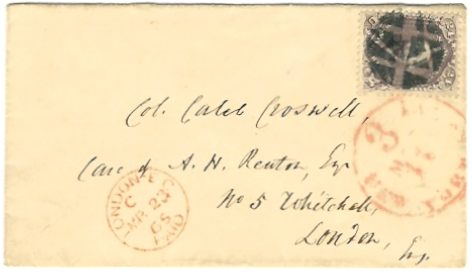 Col. Caleb Croswell,
Care of A. H. Renton, Esqr
No 5 Whitehall,
London,
Eng.
LONDON E.C
C
MR 23
65
PAID
3